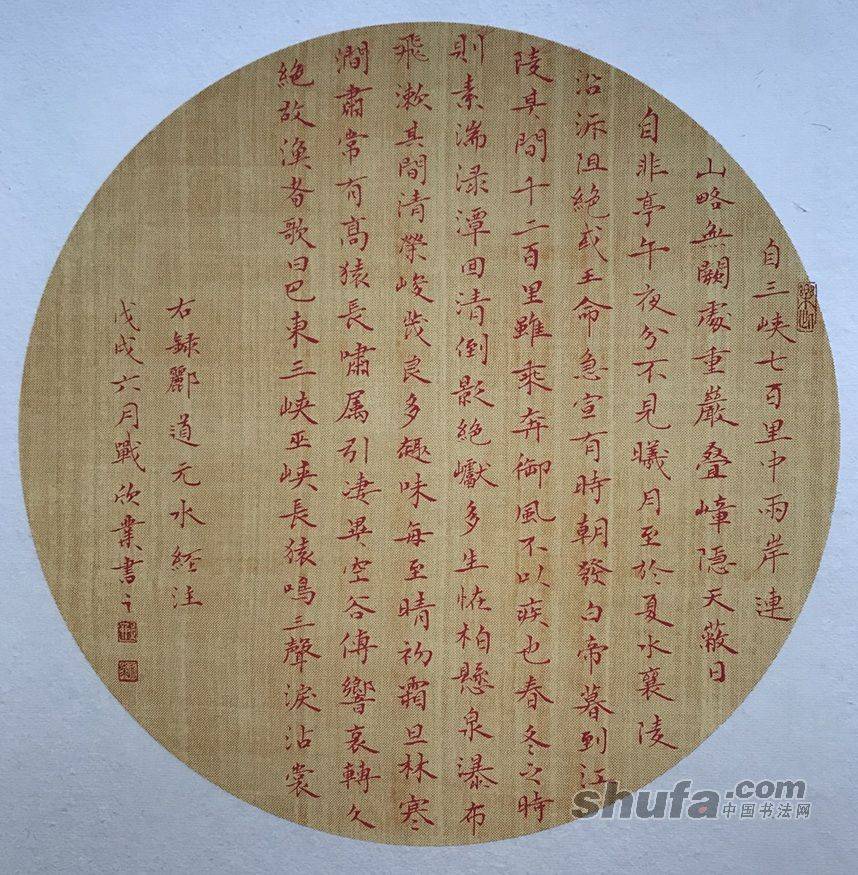 自三峡七百里中兩岸連
山略無闕處重巖叠嶂隱天蔽日
自非亭午夜分不見曦月至於夏水襄陵
沿泝阻絶或王命急宣有時朝發白帝暮到江
陵其間千二百里雖乘奔御風不以疾也春冬之時
則素湍渌潭回清倒影絶巘多生恠柏懸泉瀑布
飛漱其間清榮峻茂良多趣味每至晴初霜旦林寒
澗肅常有高猿長嘯属引凄異空谷傳響哀轉久
絶故漁者歌曰巴東三峡巫峡長猿鳴三聲淚沾裳
右録酈道元水経注
戊戌六月戰欣業書之
shufa.com
中国书法网